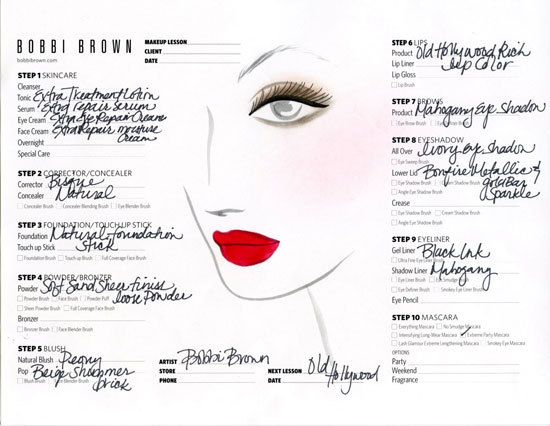 BOBBI BROWN
bobbibrown.com
MAKEUP LESSON
CLIENT
DATE
STEP 1 SKINCARE
Cleanser
Tonic Extra Treatment Lotion
Serum Extra repair Serum
Eye Cream Extra Eye Repair Cream
Face Cream Extra Repair moisture
Cream
Overnight
Special Care
STEP 2 CORRECTOR/CONCEALER
Corrector Bisque
Concealer Natural
Concealer Brush Concealer Blending Brush Eye Blender Brush
STEP 3 FOUNDATION/TOUCH-UP STICK
Foundation Natural foundation
Touch up Stick Stick
Foundation Brush Touch-up Brush Full Coverage Face Brush
STEP 4 POWDER/BRONZER
Powder Soft Sand Sheer finish
loose Powder
Powder Brush Face Brush Powder Puff
Sheer Powder Brush Full Coverage Face Brush
Bronzer
Bronzer Brush Face Blender Brush
STEP 5 BLUSH
Natural Blush Peony
Pop Beige Shimmer
Brick
Blush Brush
ARTIST Bobbi Brown
STORE
PHONE
NEXT LESSON Old
DATE Hollywood
STEP 6 LIPS
Product Old Hollywood Rich
Lip Liner Lip Color
Lip Gloss
Lip Brush
STEP 7 BROWS
Product Mahogany Eye Shadow
Eye Brow Brush
STEP 8 EYESHADOW
All Over Ivory eye Shadow
Eye Sweep Brush
Lower Lid Bonfire Metallic &
gold Bar
Sparkle
Eye Shadow Brush
Angle Eye Shadow Brush
Crease
Eye Shadow Brush Cream Shadow Brush
Angle Eye Shadow Brush
STEP 9 EYELINER
Gel Liner Black Ink
Ultra Fine Eye Liner Brush
Shadow Liner Mahogany
Eye Liner Brush Eye Smudge Brush
Eye Definer Brush Smokey Eye Liner Brush
Eye Pencil
STEP 10 MASCARA
Everything Mascara No Smudge Mascara
Intensifying Long-Wear Mascara Extreme Party Mascara
Lash Glamour Extreme Lengthening Mascara Smokey Eye Mascara
OPTIONS
Party
Weekend
Fragrance